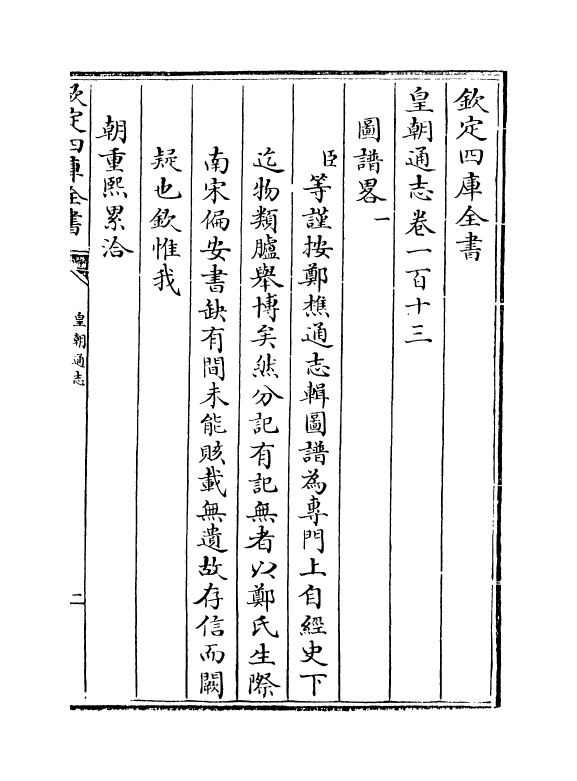 欽定四庫全書
皇朝通志卷一百十三
圖譜畧一
臣等謹按鄭樵通志輯圖譜為專門上自經史下
迄物類臚舉博矣然分記有記無者以鄭氏生際
南宋偏安書缺有間未能賅載無遺故存信而闕
疑也欽惟我
朝重熙累洽
欽定四庫全書
皇朝通志
二